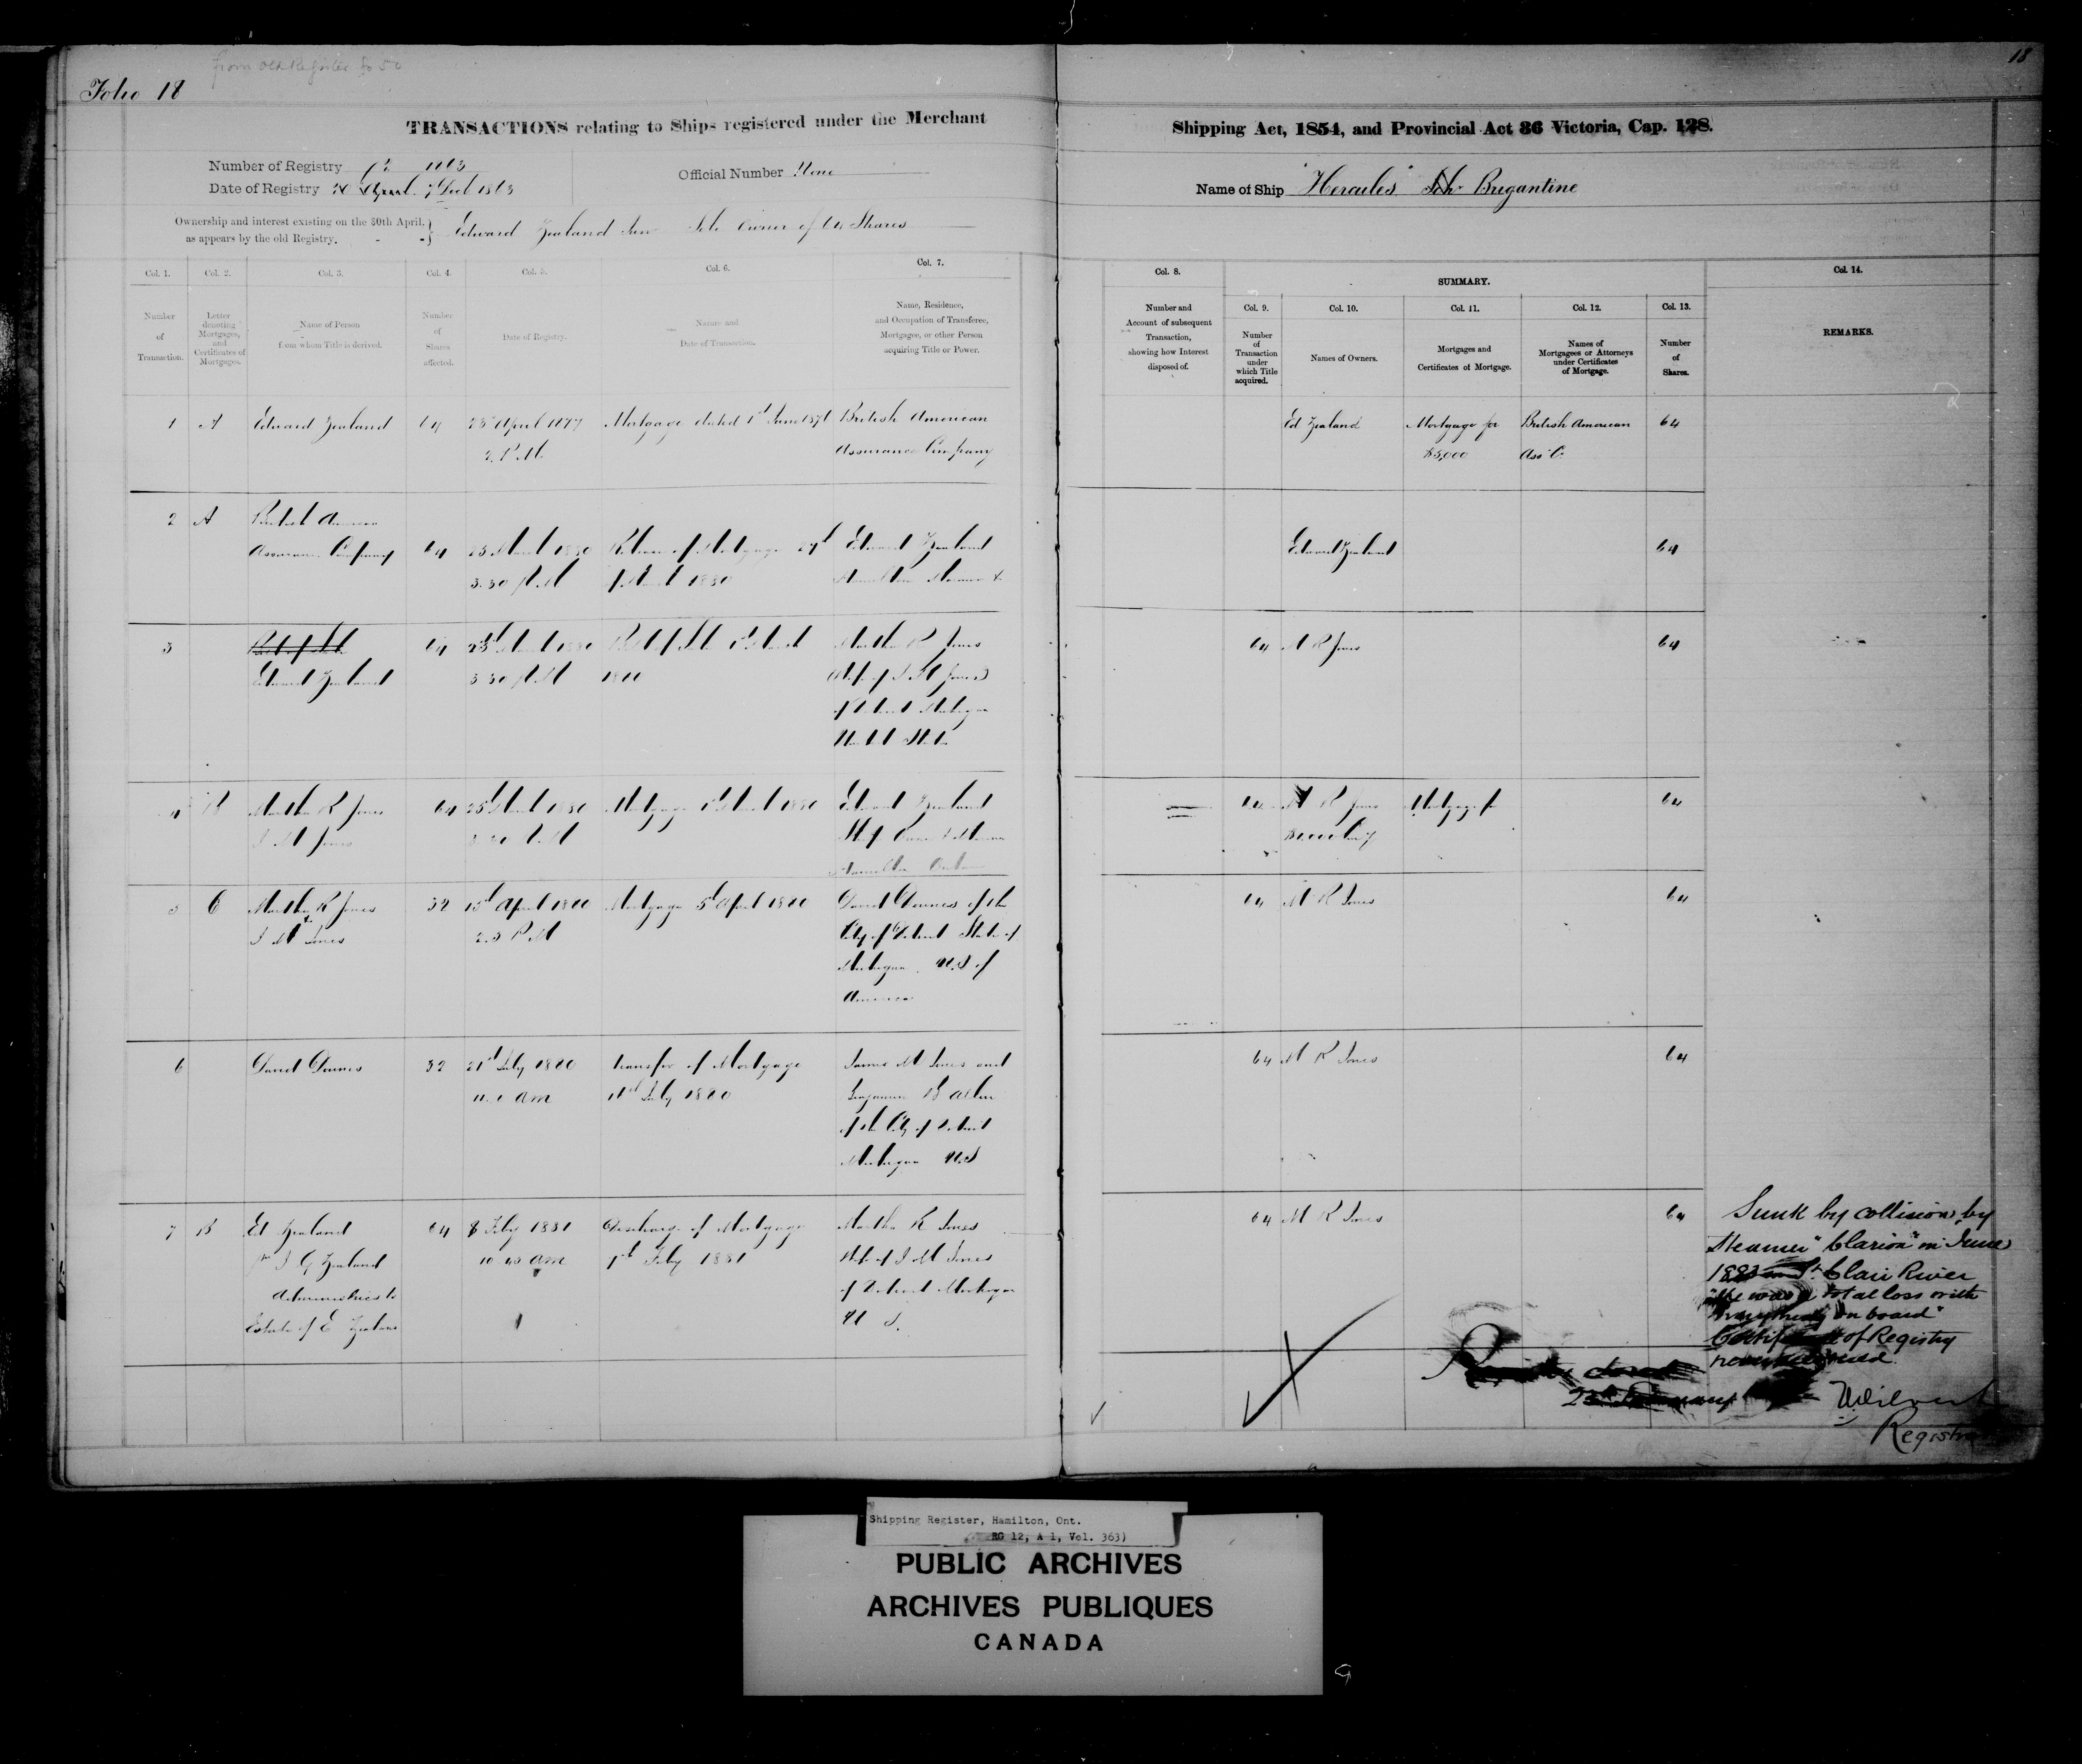 from old Register fo 50
Folio 18
18
TRANSACTIONS relating to Ships registered under the Merchant
Shipping Act, 1854, and Provincial Act 36 Victoria, Cap. 128.
Number of Registry 1863
Date of Registry 1863
Official Number None
Name of Ship "Hercules" Sch Brigantine
Ownership and interest existing on the 30th April,
as appears by the old Registry.
Edward Zealand Sole Owner of 64 Shares
Col. 1.
Col. 2.
Col. 3.
Col. 4.
Col. 5.
Col. 6.
Col. 7.
Col. 8.
SUMMARY.
Col. 14.
Number
of
Transaction.
Letter
denoting
Mortgages,
and
Certificates of
Mortgages.
Name of Person
from whom Title is derived.
Number
of
Shares
affected.
Date of Registry.
Nature and
Date of Transaction.
Name, Residence,
and Occupation of Transferee,
Mortgagee, or other Person
acquiring Title or Power.
Number and
Account of subsequent
Transaction,
showing how Interest
disposed of.
Col. 9.
Number
of
Transaction
under
which Title
acquired.
Col. 10.
Names of Owners.
Col. 11.
Mortgages and
Certificates of Mortgage.
Col. 12.
Names of
Mortgagees or Attorneys
under Certificates
of Mortgage.
Col. 13.
Number
of
Shares.
REMARKS.
1 A Edward Zealand 64 April 1877 Mortgage dated 1st June British American
2 P.M. Assurance Company
Ed Zealand Mortgage for British American 64
$5,000 Ass Co.
2 A British American
Assurance Company 64 March 1880 Release of Mortgage Edward Zealand
3.30 P M of March 1880 Hamilton Mariner
Edward Zealand 64
3 Bill of Sale 64 March 1880 Bill of Sale 1st March Martha R Jones
Edward Zealand 3 30 P M Wife of J M Jones
of Detroit Michigan
United States
64 M R Jones 64
4 B Martha R Jones 64 March 1880 Mortgage 1st March 1880 Edward Zealand
J M Jones P. M Ship Owner Mariner
Hamilton Ontario
64 M R Jones Mortgage for 64
5 C Martha R Jones 32 15th April 1880 Mortgage 5th April 1880 Downes of the
J M Jones P M City of Detroit State of
Michigan U.S of
America
64 M R Jones 64
6 Downes 32 21st July 1880 Transfer of Mortgage James M Jones and
am July 1880 Benjamin B
of the City of Detroit
Michigan U.S
64 M R Jones 64
7 B Ed Zealand 64 8 Feby 1881 Discharge of Mortgage Martha R Jones
G Zealand 10 40 am Feby 1881 Wife of J M Jones
Administrix to of Detroit Michigan
Estate of E Zealand U S.
64 M R Jones 64
Sunk by collision by
Steamer "Clarion" in June
St. Clair River
"She was a total loss with
everything on board"
Certificate of Registry
never
Registry closed
Registrar
Shipping Register, Hamilton, Ont.
RG 12, A 1, Vol. 363)
PUBLIC ARCHIVES
ARCHIVES PUBLIQUES
CANADA